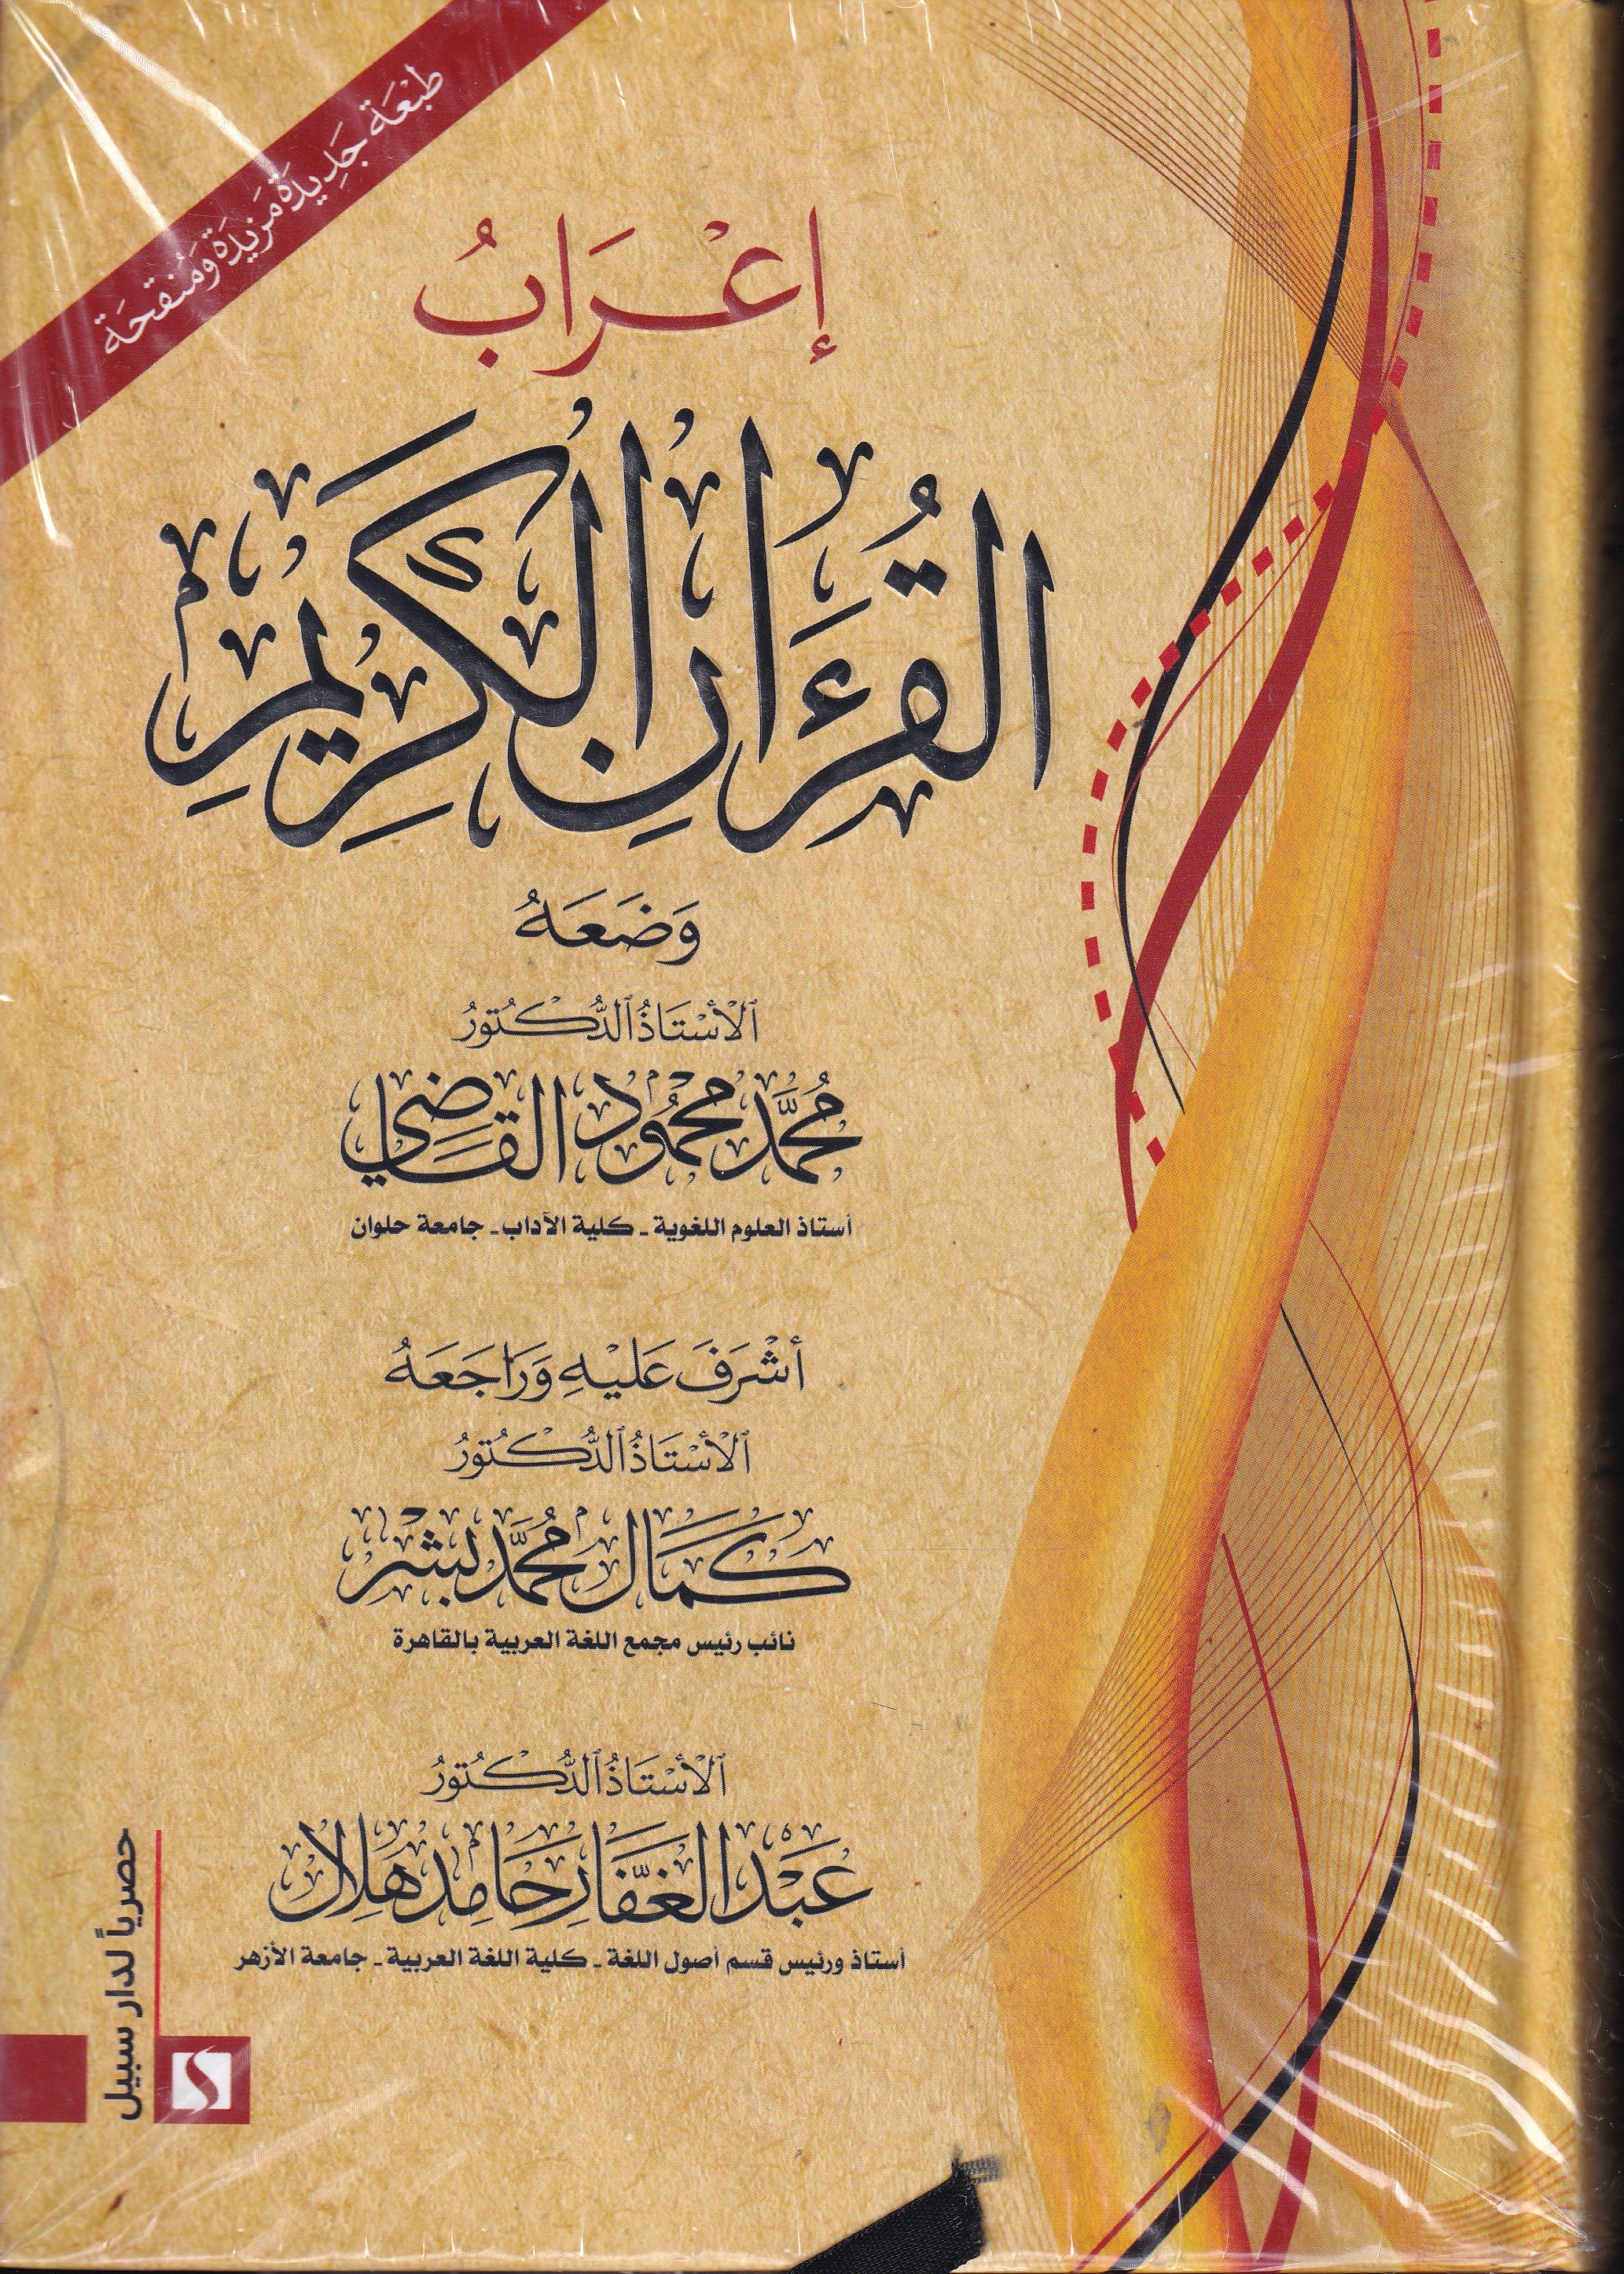 طبْعَة جَدِيدَة مَزيدَة وَمُنقحَة
إعْرَابُ
القُرْءَانِ الكَرِيمِ
وَضَعَهُ
ٱلْأُسْتَاذُ ٱلدُّكْتُورُ
مُحَمَّد مَحْمُود القَاضِي
أستاذ العلوم اللغوية ـ كلية الآداب ـ جامعة حلوان
أشْرَفَ عَليْهِ وَرَاجَعَهُ
ٱلْأُسْتَاذُ ٱلدُّكْتُورُ
كَمَال مُحَمَّد بِشْر
نائب رئيس مجمع اللغة العربية بالقاهرة
ٱلْأُسْتَاذُ ٱلدُّكْتُورُ
عَبْد الغَفَّار حَامِد هِلَال
أستاذ ورئيس قسم أصول اللغة ـ كلية اللغة العربية ـ جامعة الأزهر
حصرياً لدار سبيل